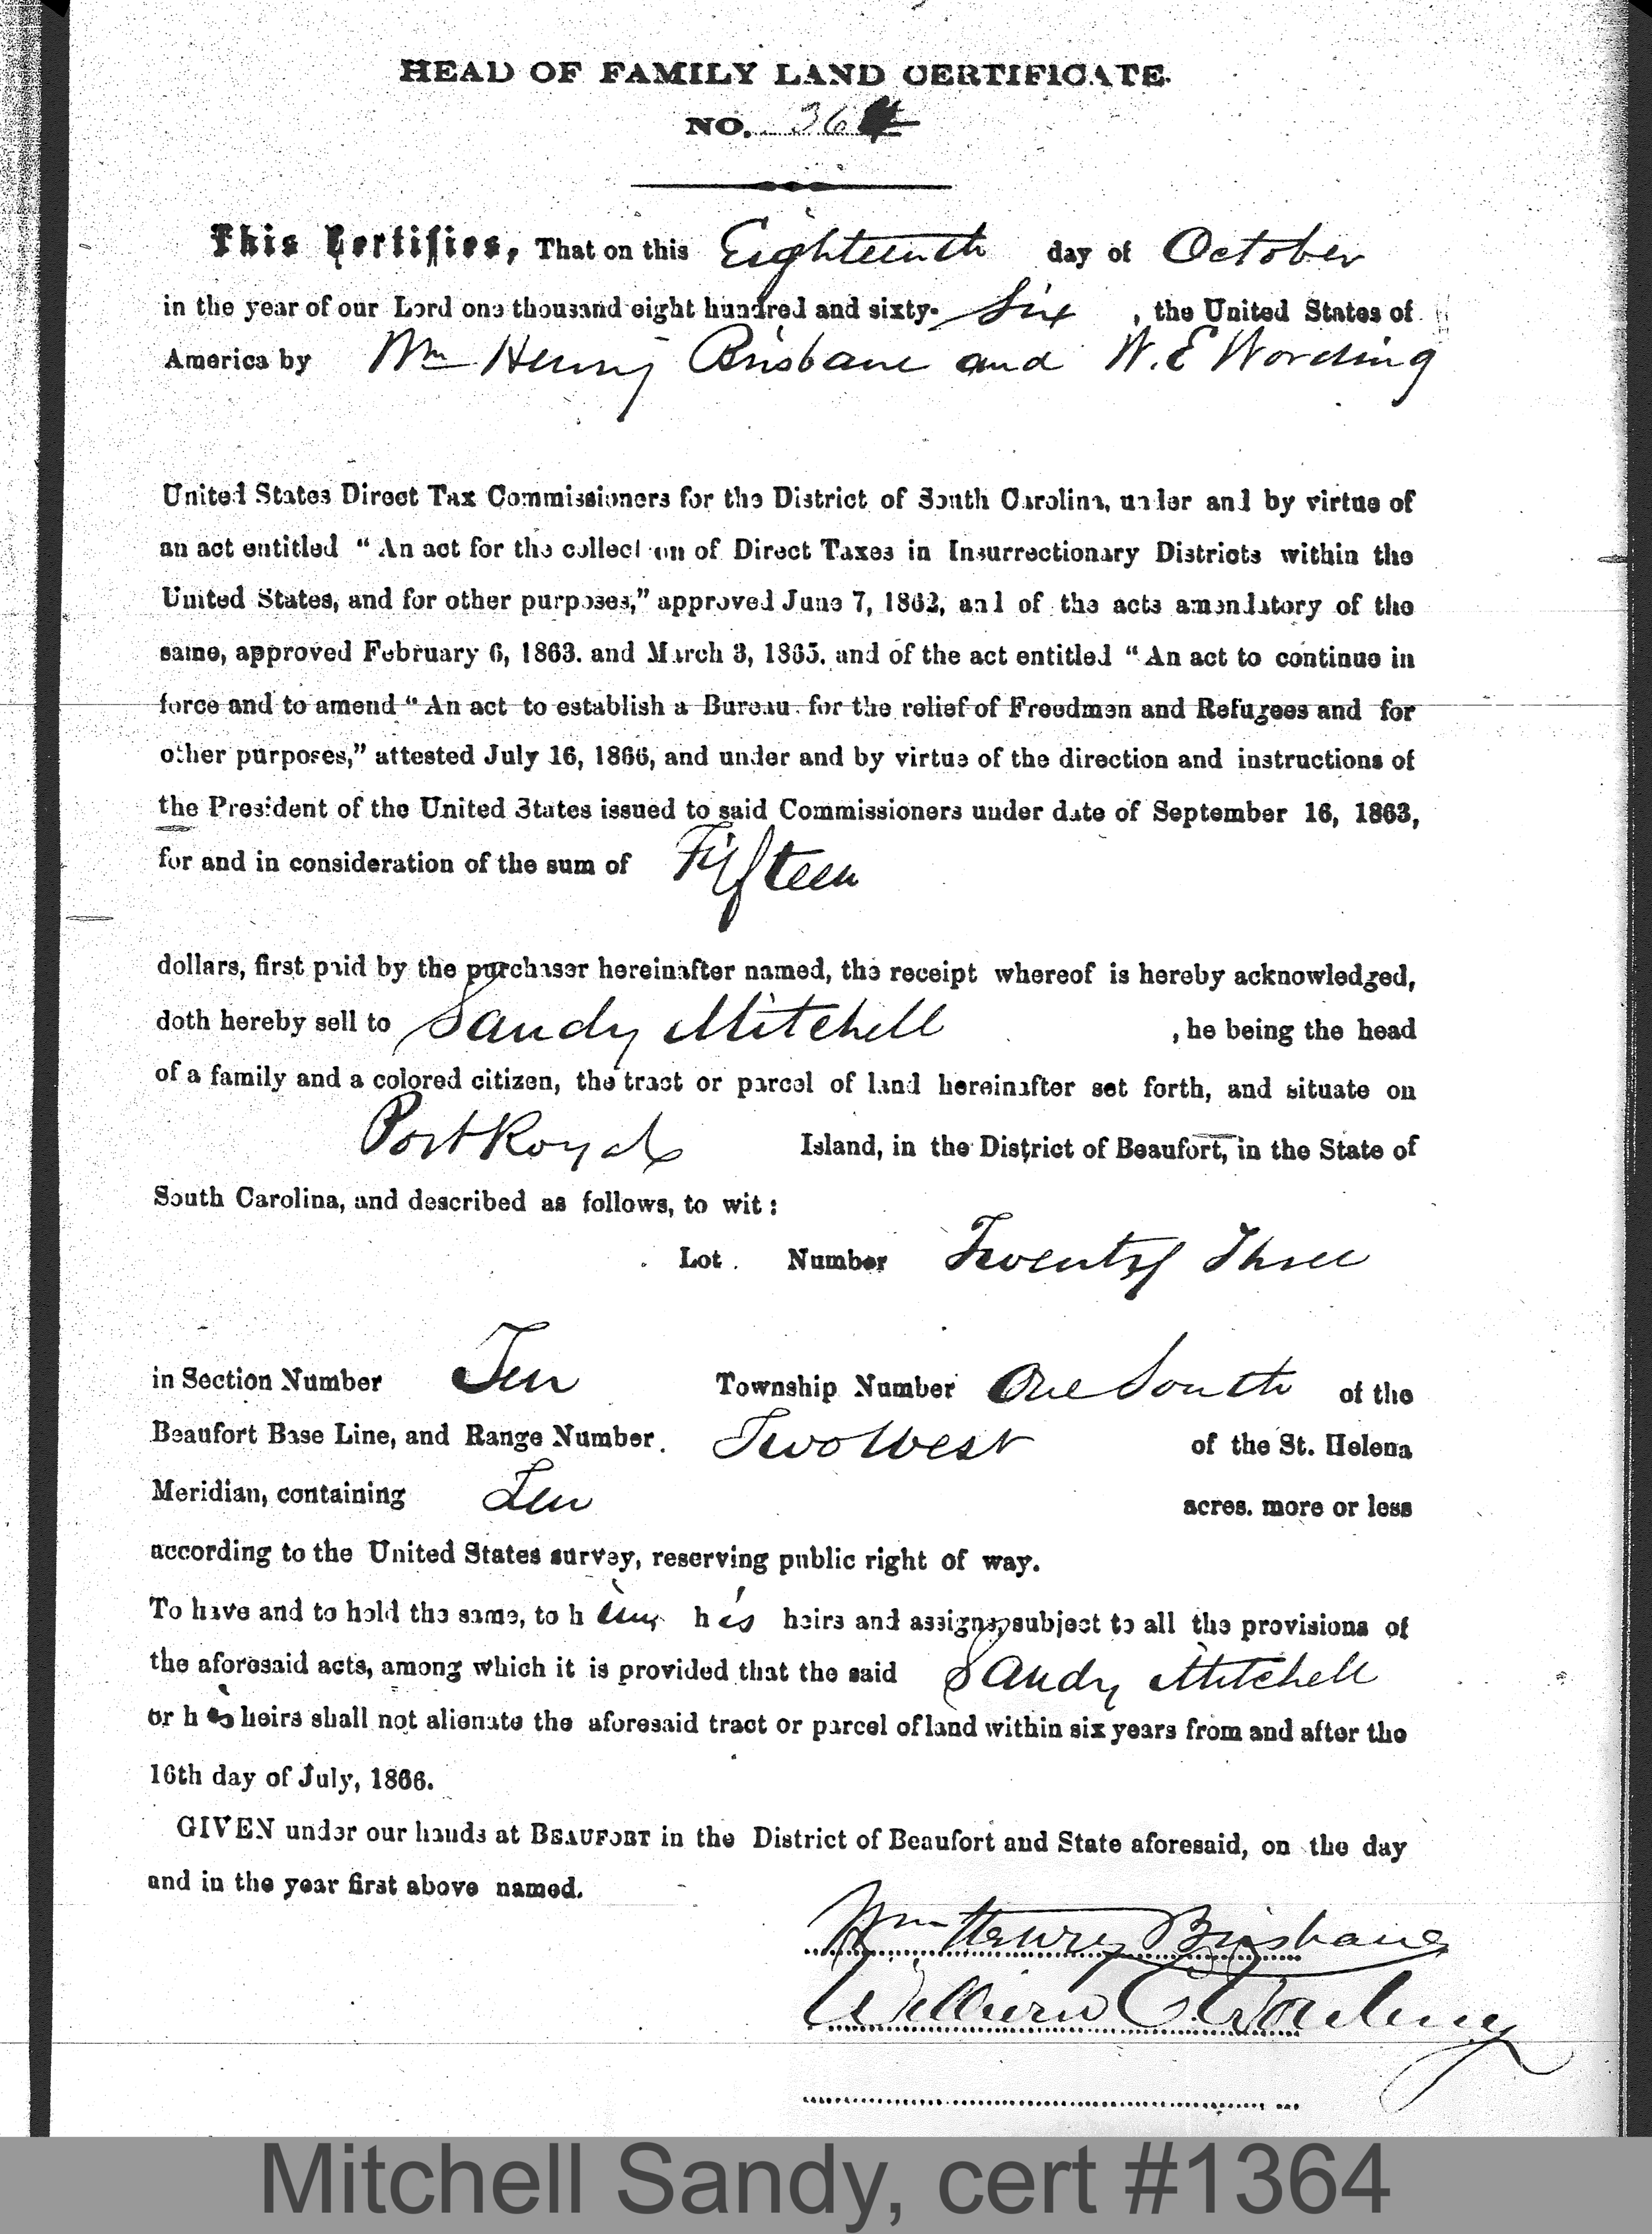 HEAD OF FAMILY LAND CERTIFICATE.
NO. 364
This Certifies, That on this Eighteenth day of October
in the year of our Lord one thousand eight hundred and sixty- Six , the United States of
America by Wm Henry Brisbane and W. E Wording
United States Direct Tax Commissioners for the District of South Carolina, under and by virtue of
an act entitled “An act for the collection of Direct Taxes in Insurrectionary Districts within the
United States, and for other purposes,” approved June 7, 1862, and of the acts amendatory of the
same, approved February 6, 1863. and March 3, 1865. and of the act entitled “An act to continue in
force and to amend “An act to establish a Bureau for the relief of Freedmen and Refugees and for
other purposes,” attested July 16, 1866, and under and by virtue of the direction and instructions of
the President of the United States issued to said Commissioners under date of September 16, 1863,
for and in consideration of the sum of Fifteen
dollars, first paid by the purchaser hereinafter named, the receipt whereof is hereby acknowledged,
doth hereby sell to Sandy Mitchell , he being the head
of a family and a colored citizen, the tract or parcel of land hereinafter set forth, and situate on
Port Royal Island, in the District of Beaufort, in the State of
South Carolina, and described as follows, to wit:
Lot. Number Twenty Three
in Section Number Ten Township Number One South of the
Beaufort Base Line, and Range Number. Two West of the St. Helena
Meridian, containing Ten acres. more or less
according to the United States survey, reserving public right of way.
To have and to hold the same, to him his heirs and assigns, subject to all the provisions of
the aforesaid acts, among which it is provided that the said Sandy Mitchell
or his heirs shall not alienate the aforesaid tract or parcel of land within six years from and after the
16th day of July, 1866.
GIVEN under our hands at BEAUFORT in the District of Beaufort and State aforesaid, on the day
and in the year first above named.
Wm Henry Brisbane
William E Wording
Mitchell Sandy, cert #1364